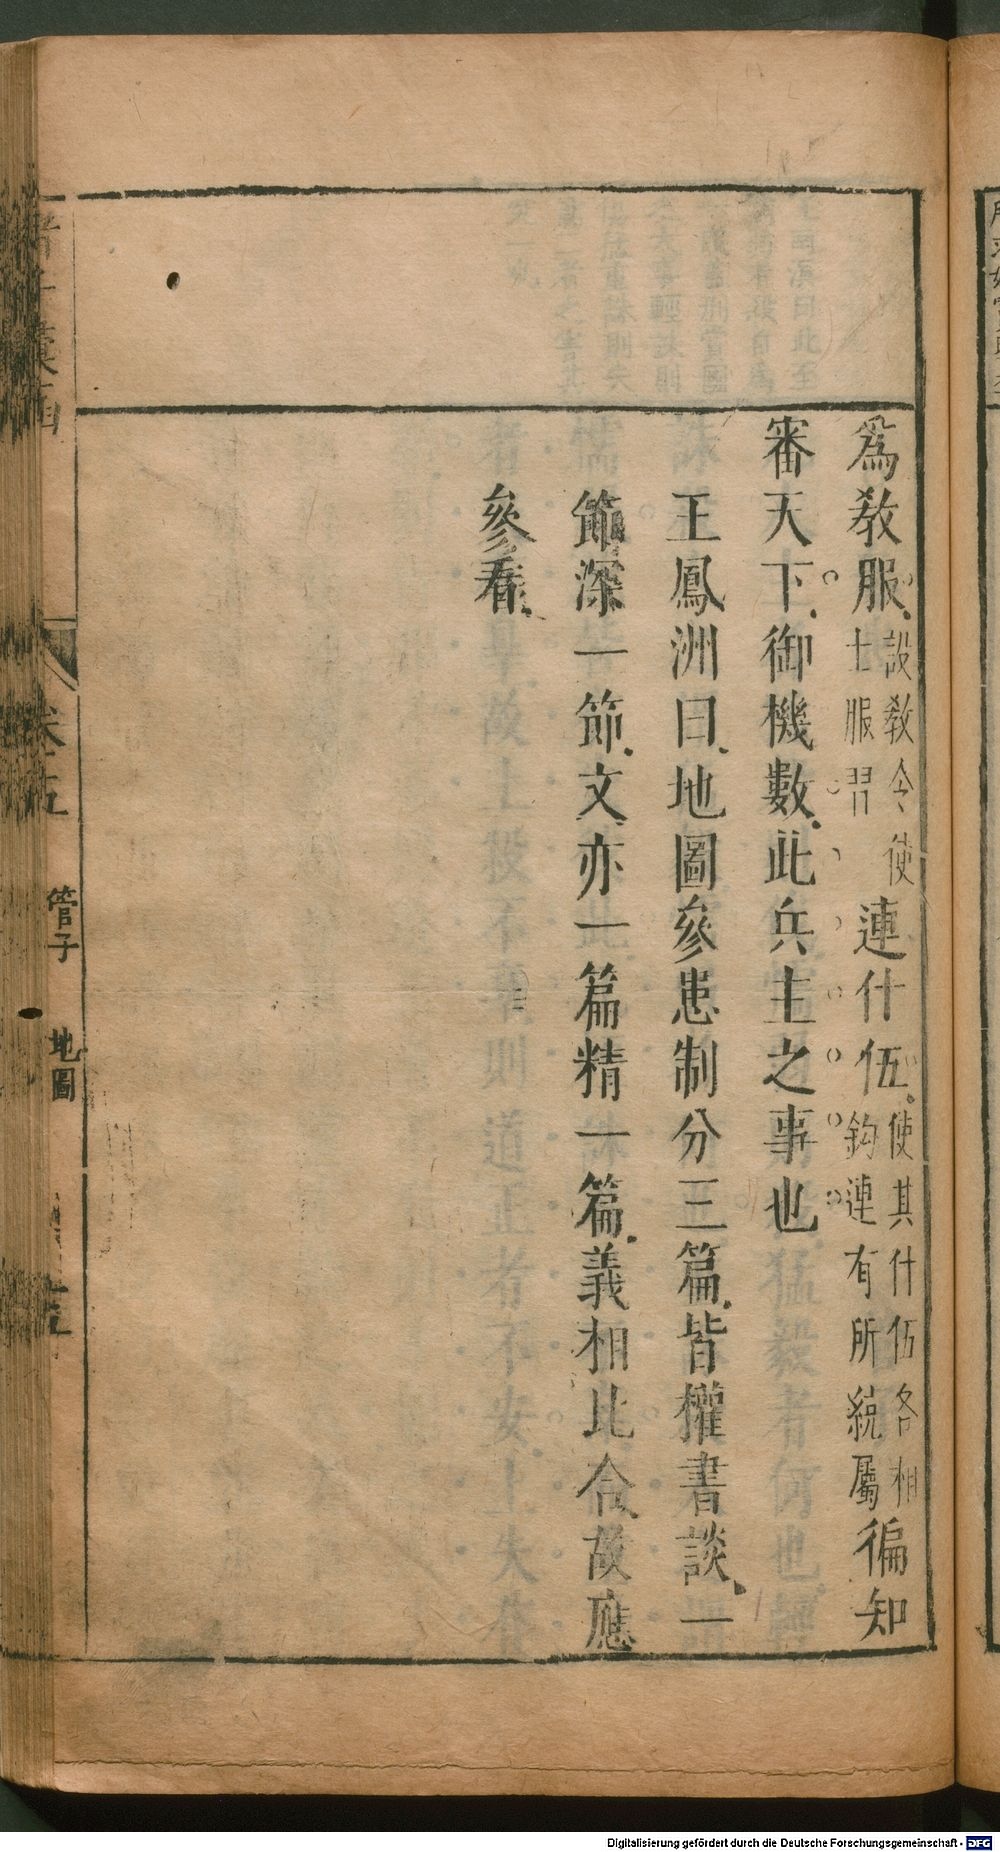 爲教服設教令使士服習連什伍使其什伍各相鈎連有所統屬徧知
審天下御機數此兵主之事也
王鳳洲曰地圖參患制分三篇皆權書談一
節深一節文亦一篇精一篇義相比合故應
參看
管子 地圖
Digitalisierung gefördert durch die Deutsche Forschungsgemeinschaft - DFG